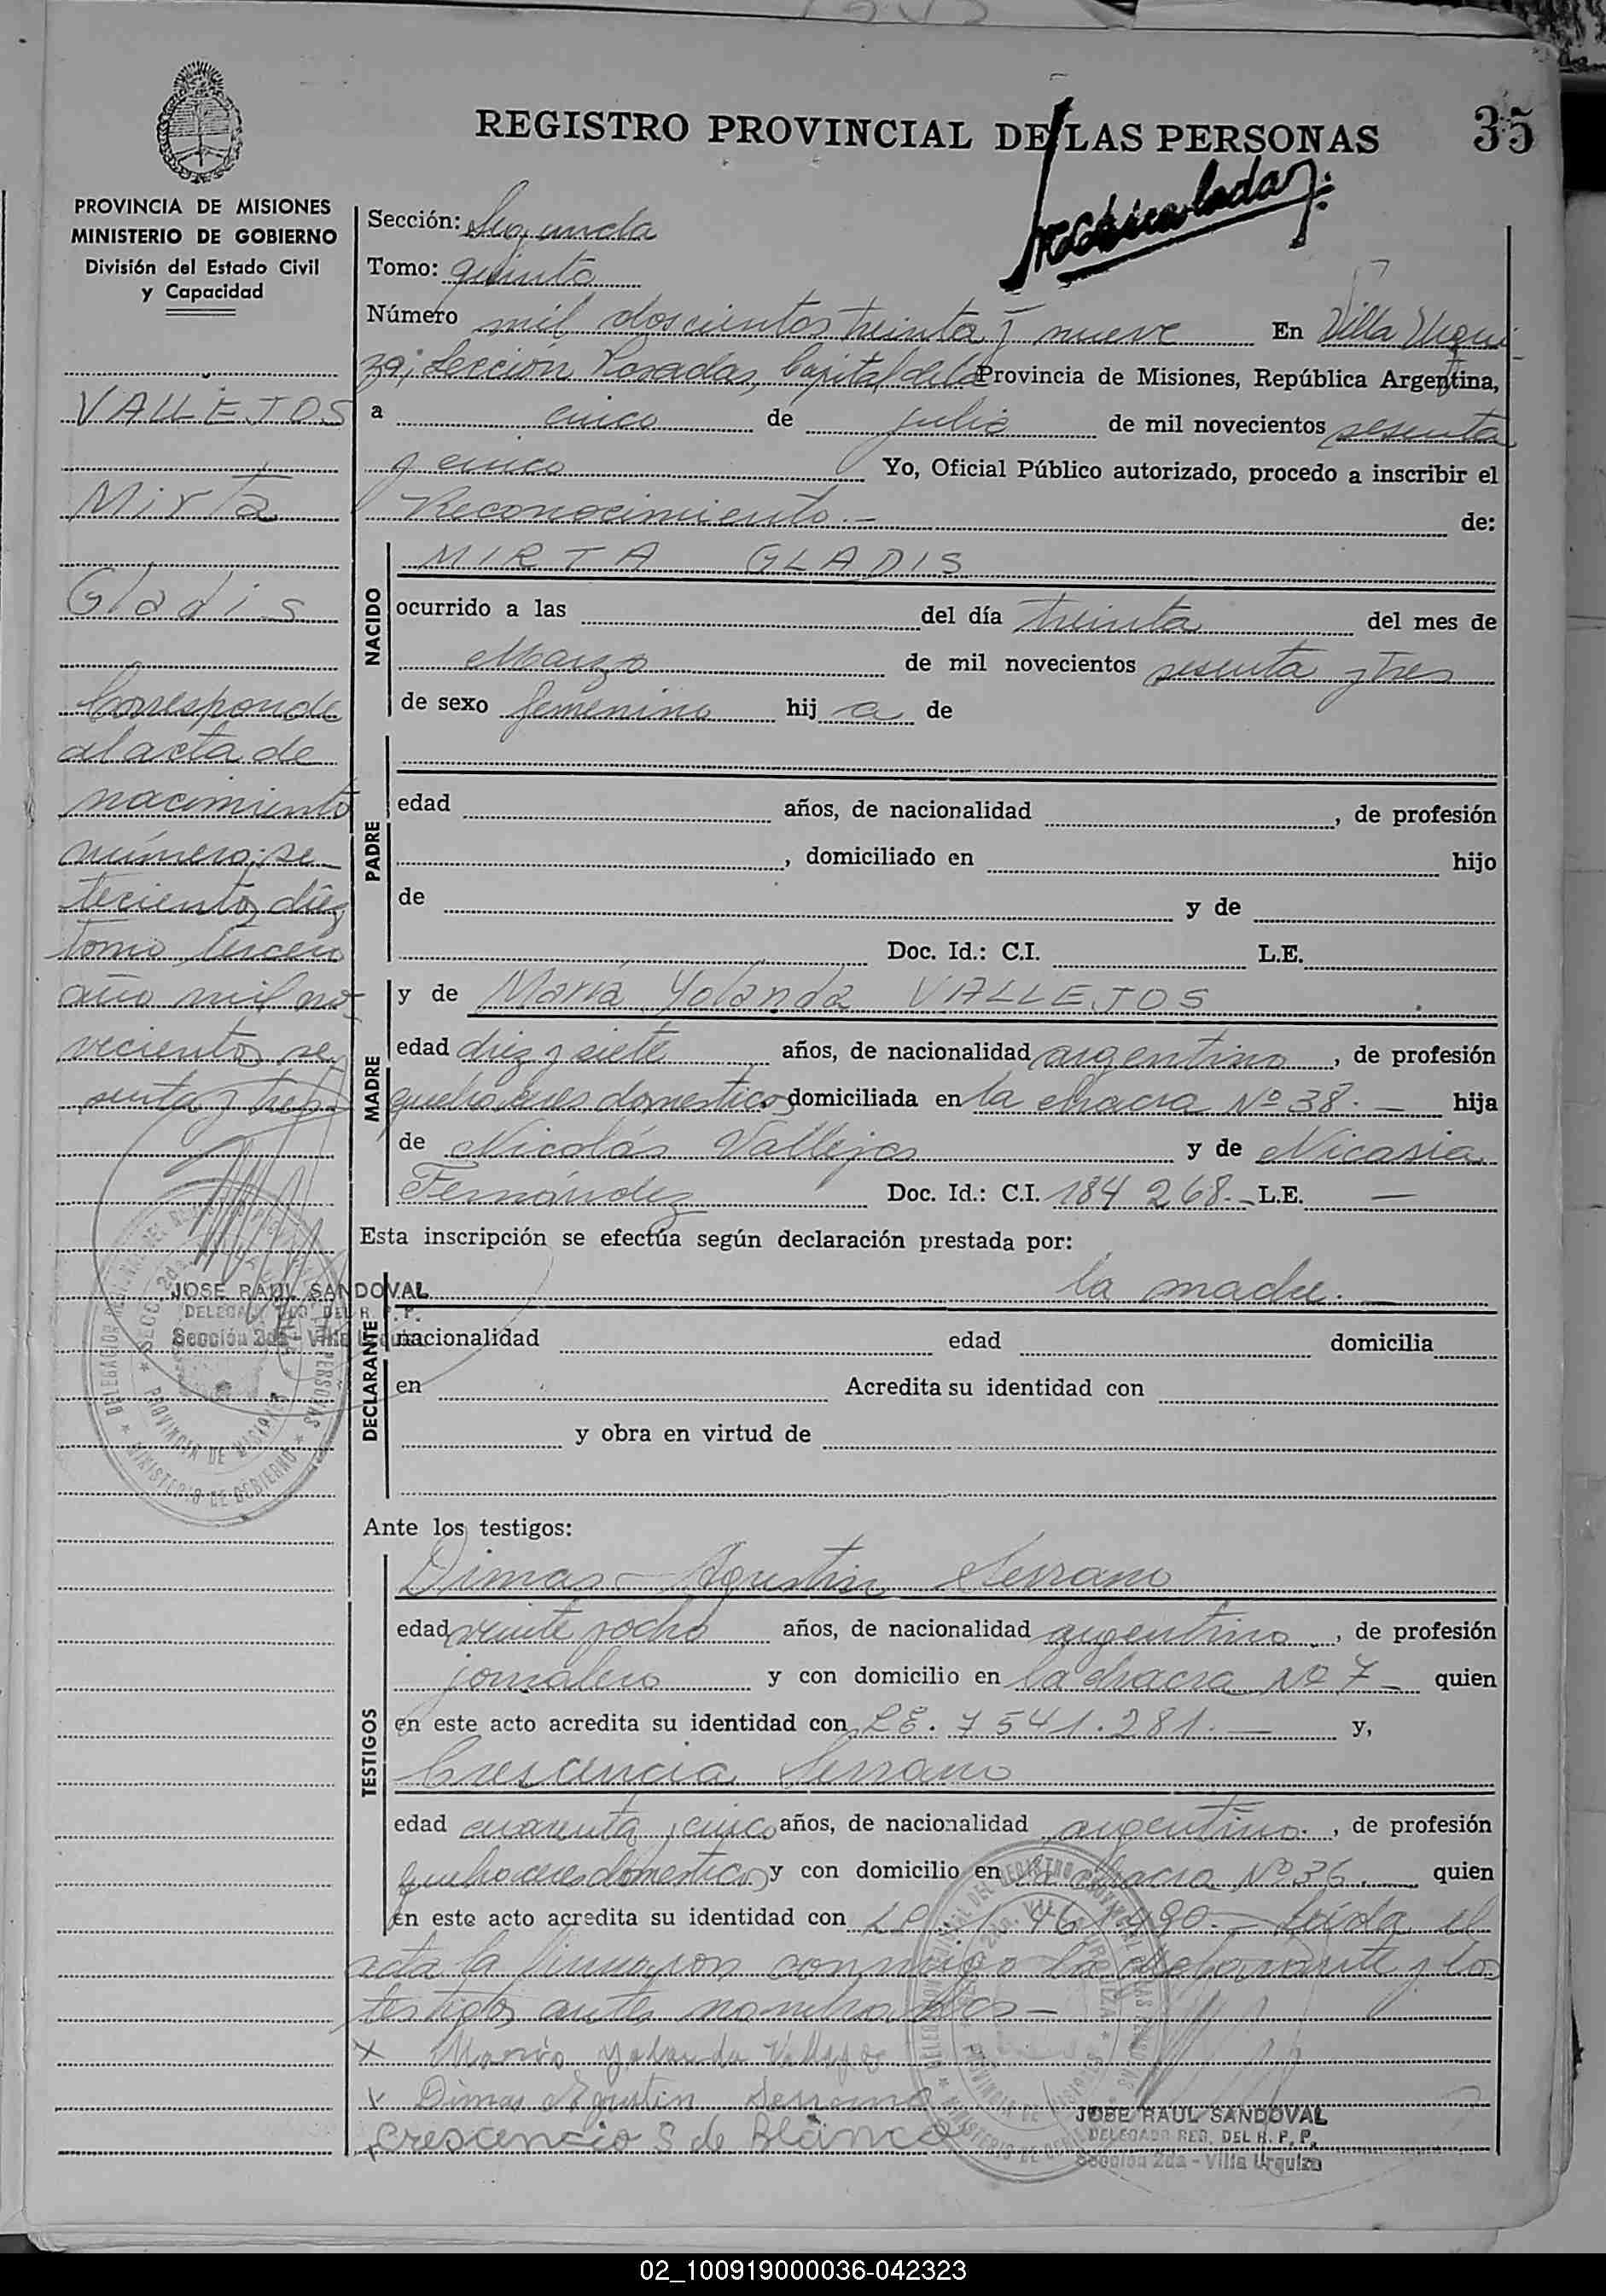 35
REGISTRO PROVINCIAL DE LAS PERSONAS
PROVINCIA DE MISIONES
MINISTERIO DE GOBIERNO
División del Estado Civil
y Capacidad
VALLEJOS
Mirta
Gladis
Corresponde
al acta de
nacimiento
número: se
tecientos diez
tomo tercero
año mil no
vecientos se
senta y tres
JOSE RAUL SANDOVAL
DELEGADO REG. DEL R. P. P.
Sección 2da - Villa Urquiza
Sección: Segunda
Tomo: quinto
Número mil doscientos treinta y nueve En Villa Urqui
za, Sección Posadas, Capital de la Provincia de Misiones, República Argentina,
a cinco de julio de mil novecientos sesenta
y cinco Yo, Oficial Público autorizado, procedo a inscribir el
Reconocimiento.- de:
NACIDO
MIRTA GLADIS
ocurrido a las del día treinta del mes de
Marzo de mil novecientos sesenta y tres
de sexo femenino hij a de
PADRE
edad años, de nacionalidad , de profesión
, domiciliado en hijo
de y de
Doc. Id.: C.I. L.E.
MADRE
y de María Yolanda VALLEJOS
edad diez y siete años, de nacionalidad argentina, de profesión
quehaceres domesticos domiciliada en la chacra Nº 38. - hija
de Nicolás Vallejos y de Nicasia
Fernández Doc. Id.: C.I. 184 268.- L.E. -
Esta inscripción se efectúa según declaración prestada por:
DECLARANTE
la madre. -
nacionalidad edad domicilia
en Acredita su identidad con
y obra en virtud de
Ante los testigos:
TESTIGOS
Dimas Agustin Serrano
edad veinte y ocho años, de nacionalidad argentino, de profesión
jornalero y con domicilio en la chacra Nº 7 - quien
en este acto acredita su identidad con L.E. 7541.281. - y,
Crescencia Serrano
edad cuarenta y cinco años, de nacionalidad argentina, de profesión
quehaceres domesticos y con domicilio en la chacra Nº 36. quien
en este acto acredita su identidad con Leída el
acta la firmaron conmigo la declarante y los
testigos antes nombrados -
x Maria Yolanda Vallejos
x Dimas Agustin Serrano
x Crescencia S de Blanco
JOSE RAUL SANDOVAL
DELEGADO REG. DEL R. P. P.
Sección 2da - Villa Urquiza
02_100919000036-042323